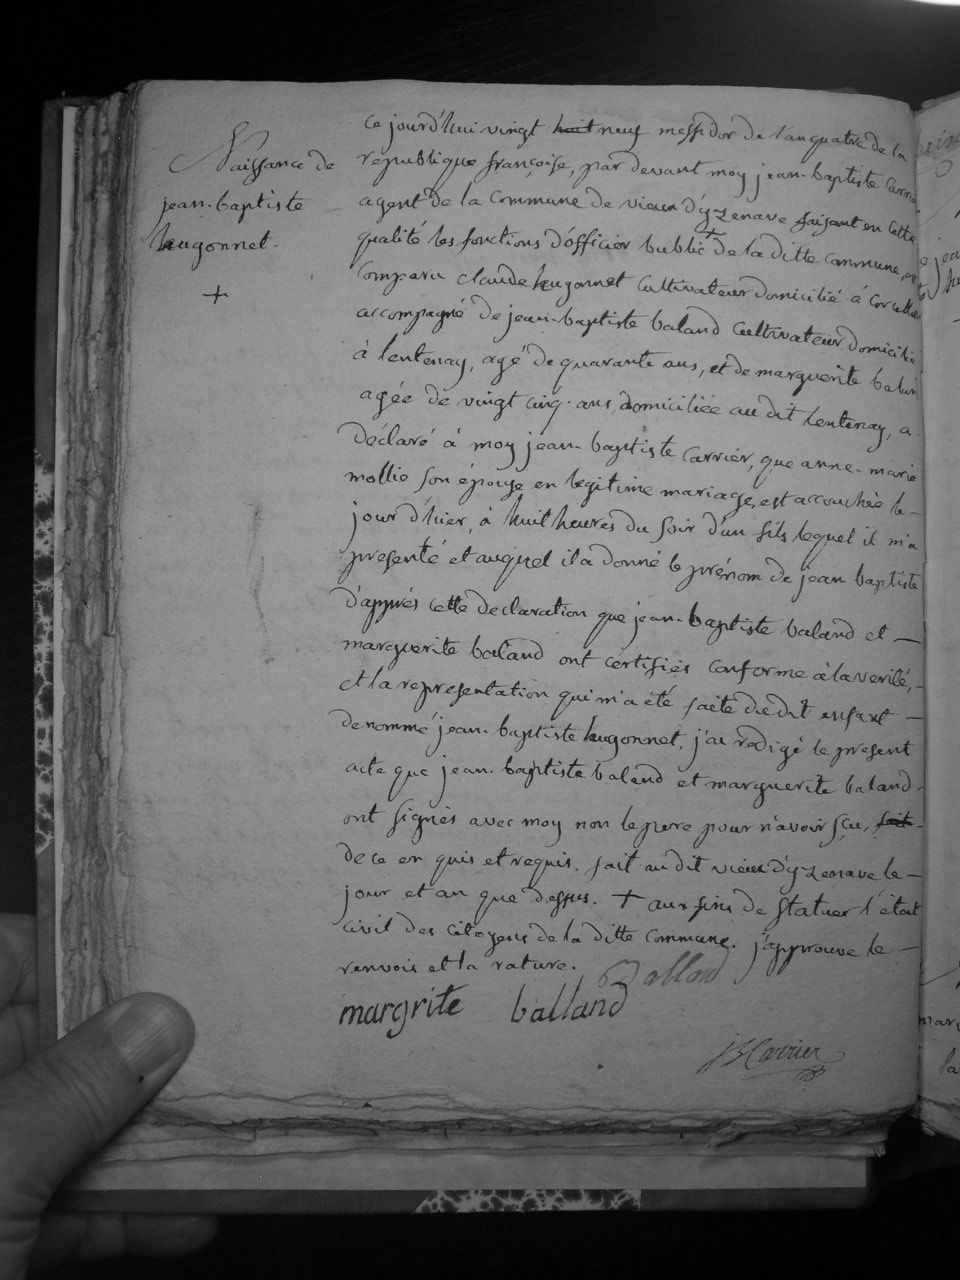 Naissance de
jean-baptiste
hugonnet.
+
ce jourd'hui vingt huit neuf messidor de l'an quatre de la
republique françoise, par devant moy jean-baptiste Carrier
agent de la Commune de vieux d'yzenave faisant en cette
qualité les fonctions d'officier public + de la ditte commune, est
comparu claude hugonnet Cultivateur domicilié à Corcelles
accompagné de jean-baptiste baland Cultivateur domicilié
à lentenay, agé de quarante ans, et de marguerite baland
agée de vingt cinq ans, domiciliée au dit lentenay, a
déclaré à moy jean-baptiste Carrier, que anne-marie
mollie son épouse en legitime mariage, est accouchée le
jour d'hier, à huit heures du soir d'un fils lequel il m'a
presenté et auquel il a donné le prénom de jean baptiste
d'apprés cette declaration que jean-baptiste baland et
marguerite baland ont certifiés conforme à la verité,
et la representation qui m'a été faite du dit enfant
denommé jean-baptiste hugonnet, j'ai redigé le present
acte que jean-baptiste baland et marguerite baland
ont signés avec moy non le pere pour n'avoir sçu, fait
de ce en quis et requis. fait au dit vieux d'yzenave le
jour et an que dessus. + aux fins de statuer l'état
civil des citoyens de la ditte commune. j'approuve le
renvois et la rature. Balland
margrite balland
JB Carrier